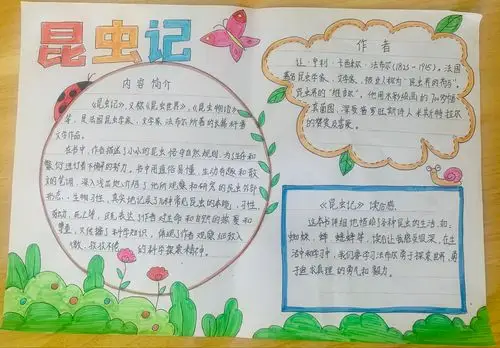 昆虫记
内容简介
《昆虫记》，又称《昆虫世界》，《昆虫物语》
等，是法国昆虫学家、文学家法布尔所著的长篇科普
文学作品。
在书中，作者描述了小小的昆虫恪守自然规则，为了生存和
繁衍进行着不懈的努力。书中用通俗易懂、生动有趣和散
文的笔调，深入浅出地介绍了他所观察和研究的昆虫的外部
形态、生物习性，真实地记录了几种常见昆虫的本能、习性、
劳动、死亡等，既表达了作者对生命和自然的热爱和
尊重，又传播了科学知识，体现了作者观察细致入
微、孜孜不倦的科学探索精神。
作者
让·亨利·卡西米尔·法布尔(1823-1915)，法国
著名昆虫学家、文学家。被世人称为"昆虫界的荷马"，
昆虫界的"维吉尔"，他用水彩绘画的700多幅
真菌图，深受普罗旺斯诗人米斯特拉尔
的赞赏及喜爱。
《昆虫记》读后感
这本书详细地描绘了各种昆虫的生活，如：
蜘蛛、蜂、蟋蟀等，读后让我感受很深，在生
活中和学习中，我们要学习法布尔勇于探索世界、勇
于追求真理的勇气和毅力。